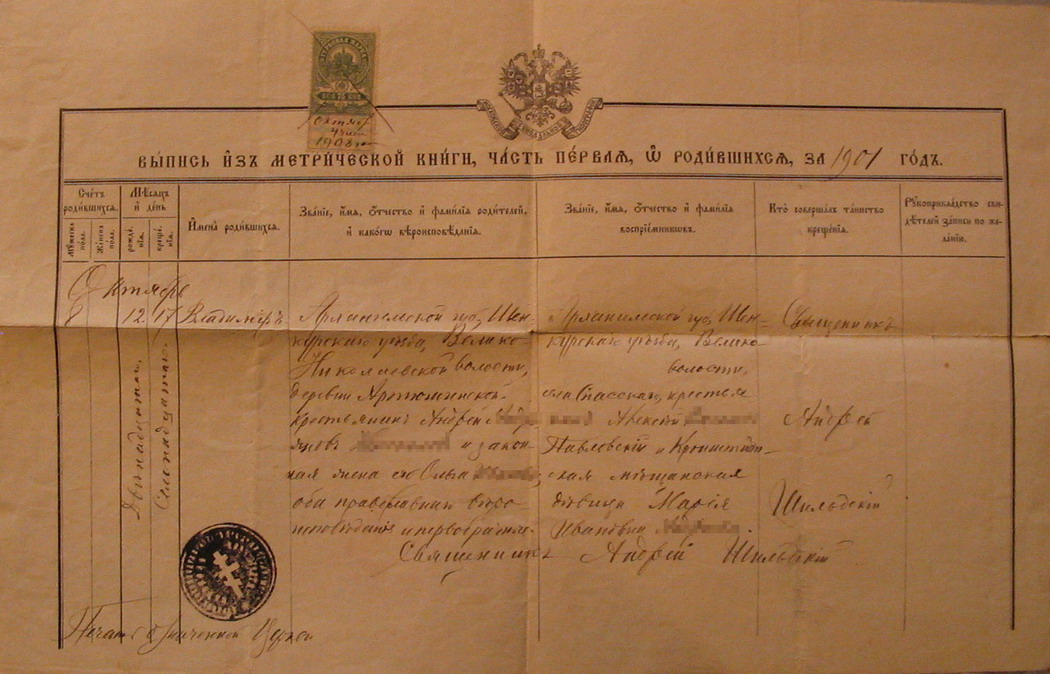 Октября
7 дня
1908 г.
ВЫ́ПИСЬ И҆ЗЪ МЕТРИ́ЧЕСКОЙ КНИ́ГИ, ЧА́СТЬ ПЕ́РВАѦ, Ѡ҆ РОДИ́ВШИХСѦ, ЗА 1901 ГО́ДЪ.
Сче́тъ роди́вшихсѧ.
Мꙋ́жеска по́ла.
Же́нска по́ла.
Мѣ́сѧцъ и҆ де́нь
рожде́нїѧ.
креще́нїѧ.
И҆мена̀ роди́вшихсѧ.
Зва́нїе, и҆́мѧ, ѻ҆́тчество и҆ фами́лїѧ роди́телей,
и҆ како́гѡ вѣроисповѣ́данїѧ.
Зва́нїе, и҆́мѧ, ѻ҆́тчество и҆ фами́лїѧ
воспрїе́мниковъ.
Кто̀ соверша́лъ та́инство
креще́нїѧ.
Рꙋкоприкла́дство сви-
дѣ́телей за́писи по же-
ла́нїю.
Октябрь
8 12 17 Владимиръ
Двѣнадцатаго
Семнадцатаго
Архангельской губ, Шен-
курскаго уѣзда, Велико-
Николаевской волости,
деревни
крестьянинъ Андрей
и закон-
ная жена его Ольга
оба православнаго вѣро-
исповѣданія и первобрачные.
Архангельской губ, Шен-
курскаго уѣзда, Велико-
волости,
села Спасскаго, крестья-
Алексѣй
Павловскій и Кронштадт-
ская мѣщанская
дѣвица Марія
Ивановна
Священникъ
Андрей
Шильдскій
Священникъ Андрей Шильдскій
Печать означенной Церкви